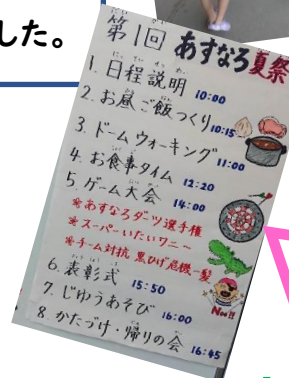 した。
第1回 あすなろ夏祭
1. 日程説明 10:00
2. お昼ご飯つくり 10:15
3. ドームウォーキング 11:00
4. お食事タイム 12:20
5. ゲーム大会 14:00
※あすなろダーツ選手権
※スーパーいたいワニ～
※チーム対抗 黒ひげ危機一髪
6. 表彰式 15:50
Noo!!
7. じゆうあそび 16:00
8. かたづけ・帰りの会 16:45